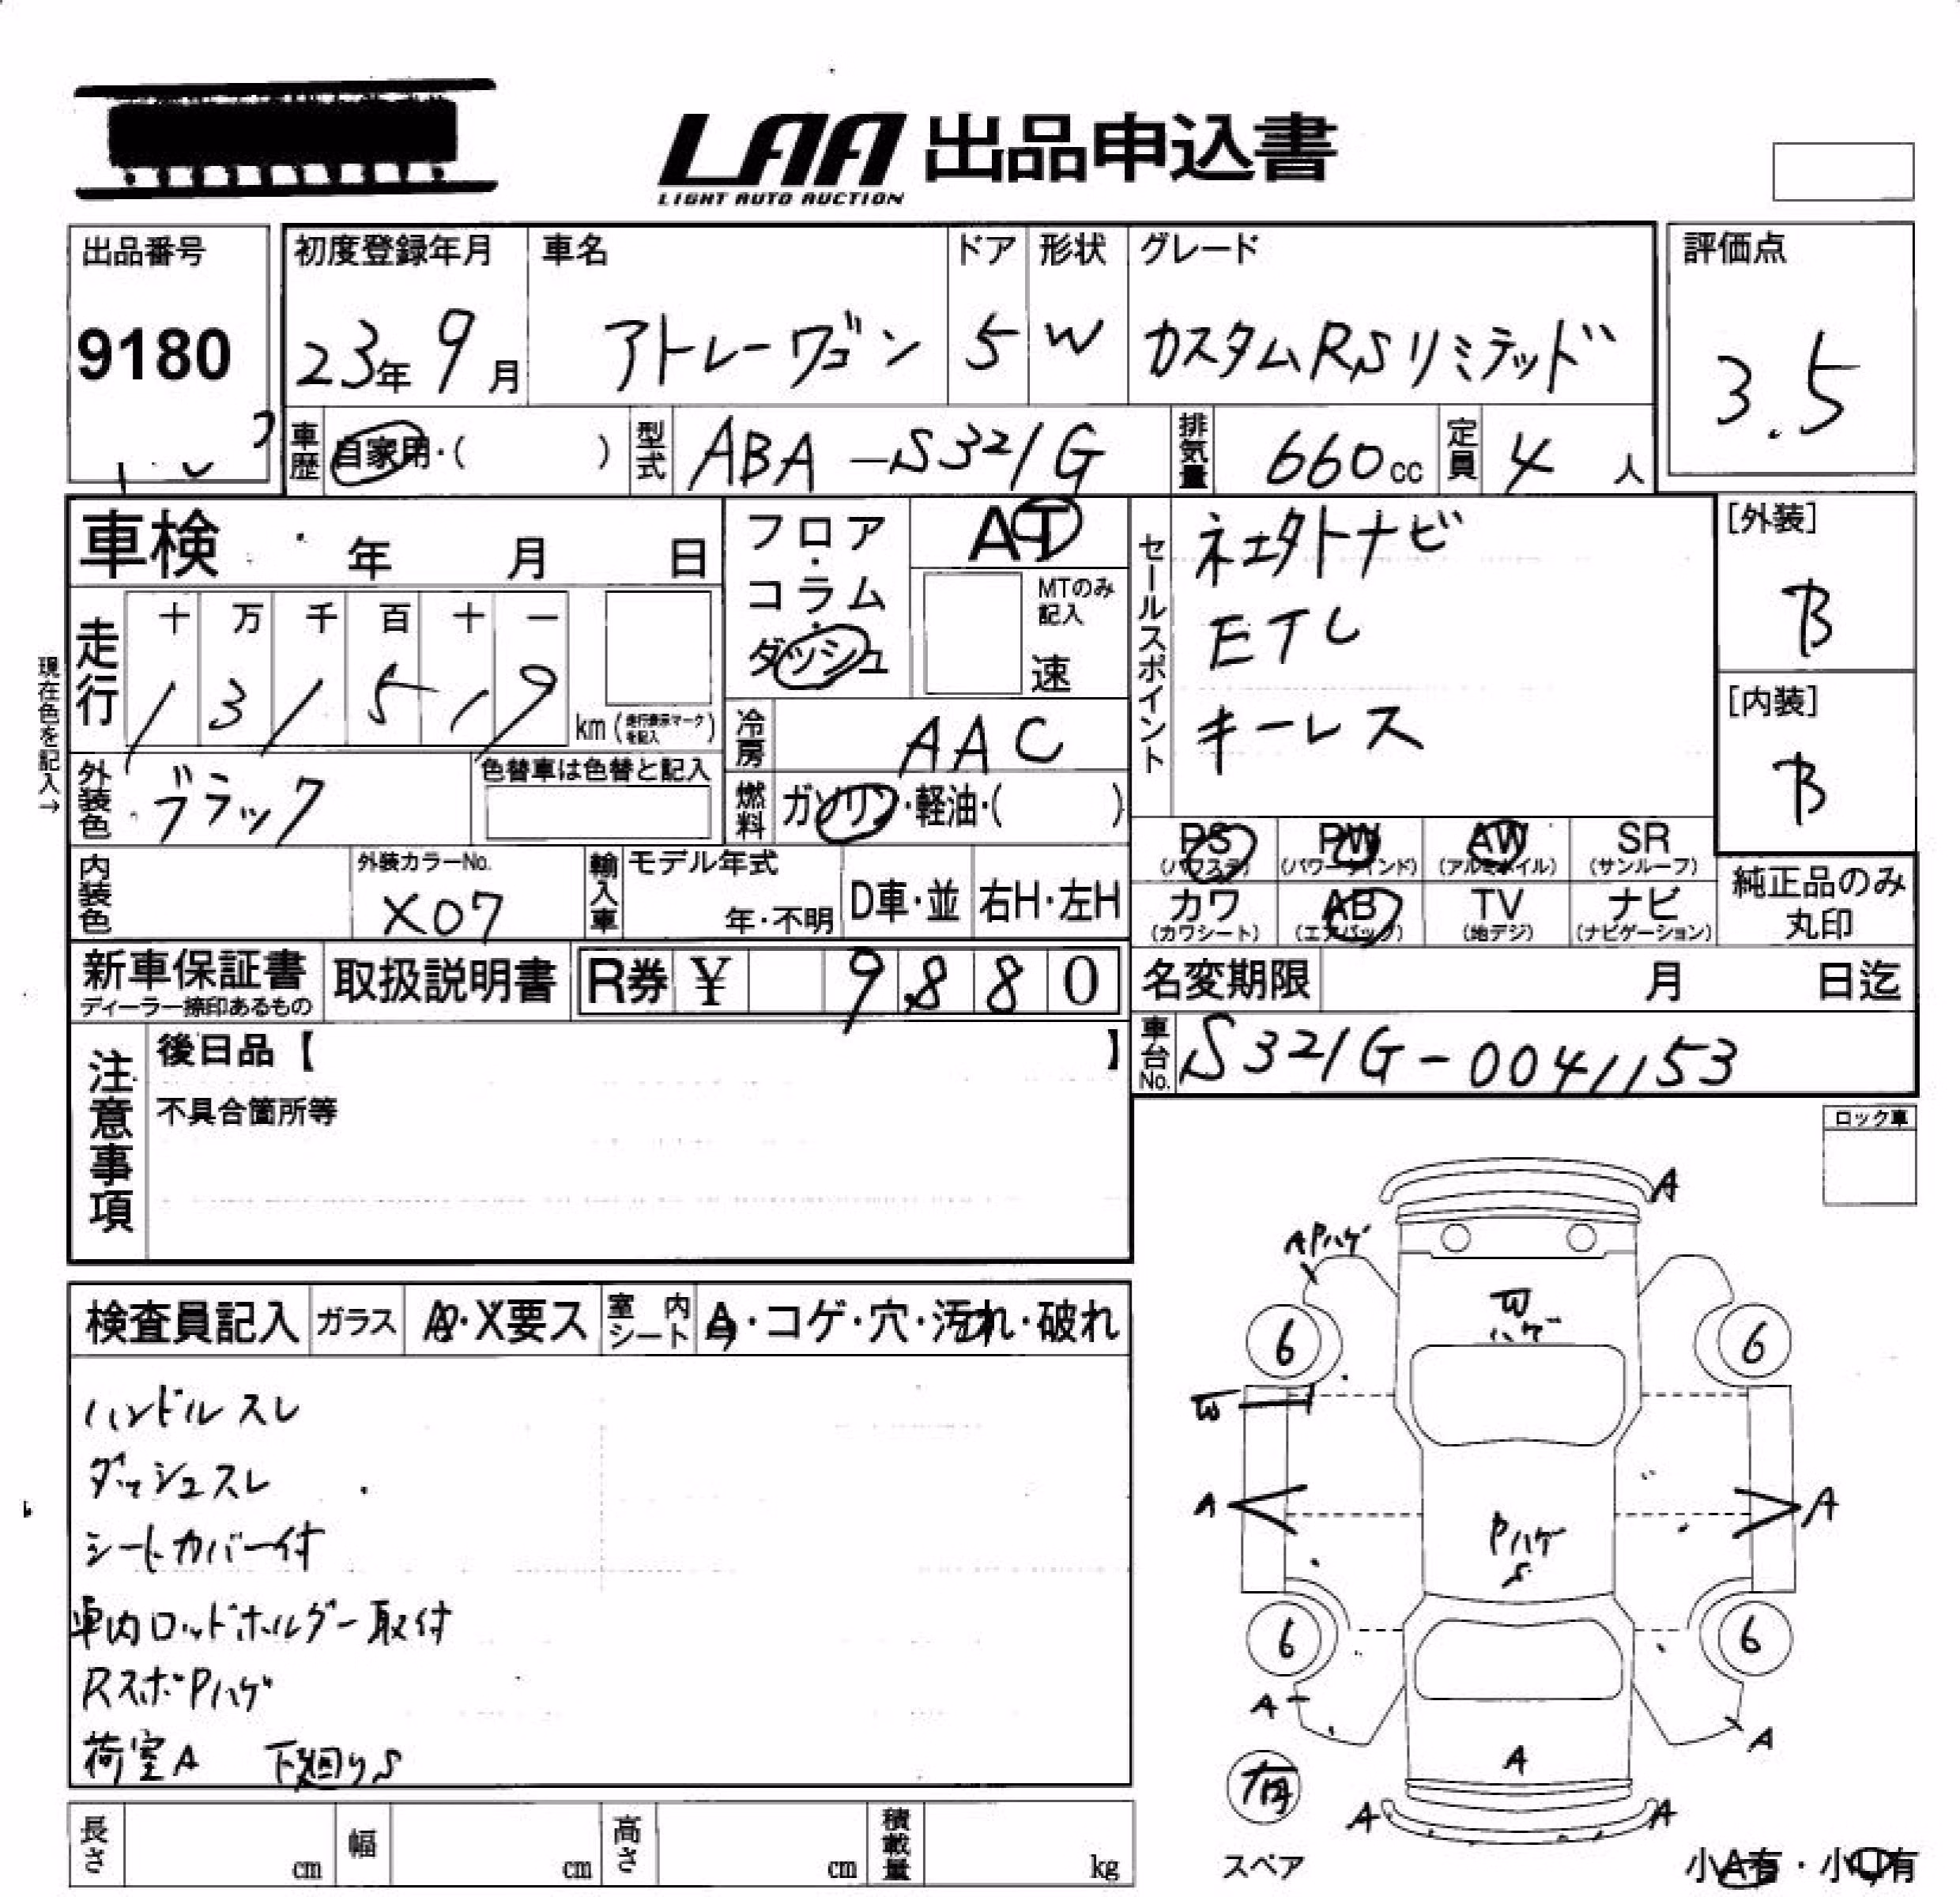 LAA 出品申込書
LIGHT AUTO AUCTION
出品番号
9180
初度登録年月
23年 9月
車名
アトレーワゴン
ドア
5
形状
W
グレード
カスタムRSリミテッド
評価点
3.5
車歴 自家用・( )
型式 ABA-S321G
排気量 660cc
定員 4人
車検 年 月 日
走行
十 万 千 百 十 一
1 3 1 5 1 9 km (走行表示マークを記入)
現在色を記入→
外装色 ブラック
色替車は色替と記入
内装色
外装カラーNo.
X07
フロア・コラム・ダッシュ
AT
MTのみ記入
速
冷房 AAC
燃料 ガソリン・軽油・( )
輸入車 モデル年式
年・不明
D車・並
右H・左H
セールスポイント
ETC
キーレス
[外装]
B
[内装]
B
PS (パワステ)
PW (パワーウインド)
AW (アルミホイル)
SR (サンルーフ)
カワ (カワシート)
AB (エアバック)
TV (地デジ)
ナビ (ナビゲーション)
純正品のみ丸印
新車保証書
ディーラー捺印あるもの
取扱説明書
R券 ¥ 9,880
名変期限 月 日迄
車台No. S321G-0041153
注意事項
後日品【 】
不具合箇所等
ロック車
検査員記入
ガラス A・X要ス
室内シート A・コゲ・穴・汚れ・破れ
ハンドルスレ
ダッシュスレ
シートカバー付
車内ロッドホルダー取付
RスポPハゲ
荷室A 下廻りS
A
APハゲ
W
ハゲ
6
6
W
A
A
Pハゲ
S
6
6
A
A
A
有
A
A
スペア
小A有・小U有
長さ cm
幅 cm
高さ cm
積載量 kg